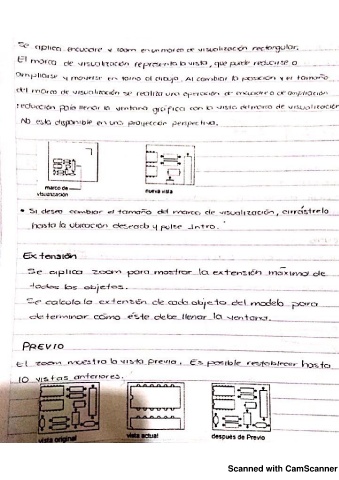 Se aplica encuadre y zoom en un marco de visualización rectangular.
El marco de visualización representa la vista, que puede reducirse o
ampliarse y moverse en torno al dibujo. Al cambiar la posición y el tamaño
del marco de visualización se realiza una operación de encuadre o de ampliación
reducción para llenar la ventana gráfica con la vista del marco de visualización
No está disponible en una proyección perspectiva.
marco de
visualización
nueva vista
• Si desea cambiar el tamaño del marco de visualización, arrástrelo
hasta la ubicación deseada y pulse Intro.
Extensión
Se aplica zoom para mostrar la extensión máxima de
todos los objetos.
Se calcula la extensión de cada objeto del modelo para
determinar cómo éste debe llenar la ventana.
PREVIO
El zoom muestra la vista previa. Es posible restablecer hasta
10 vistas anteriores.
vista original
vista actual
después de Previo
Scanned with CamScanner